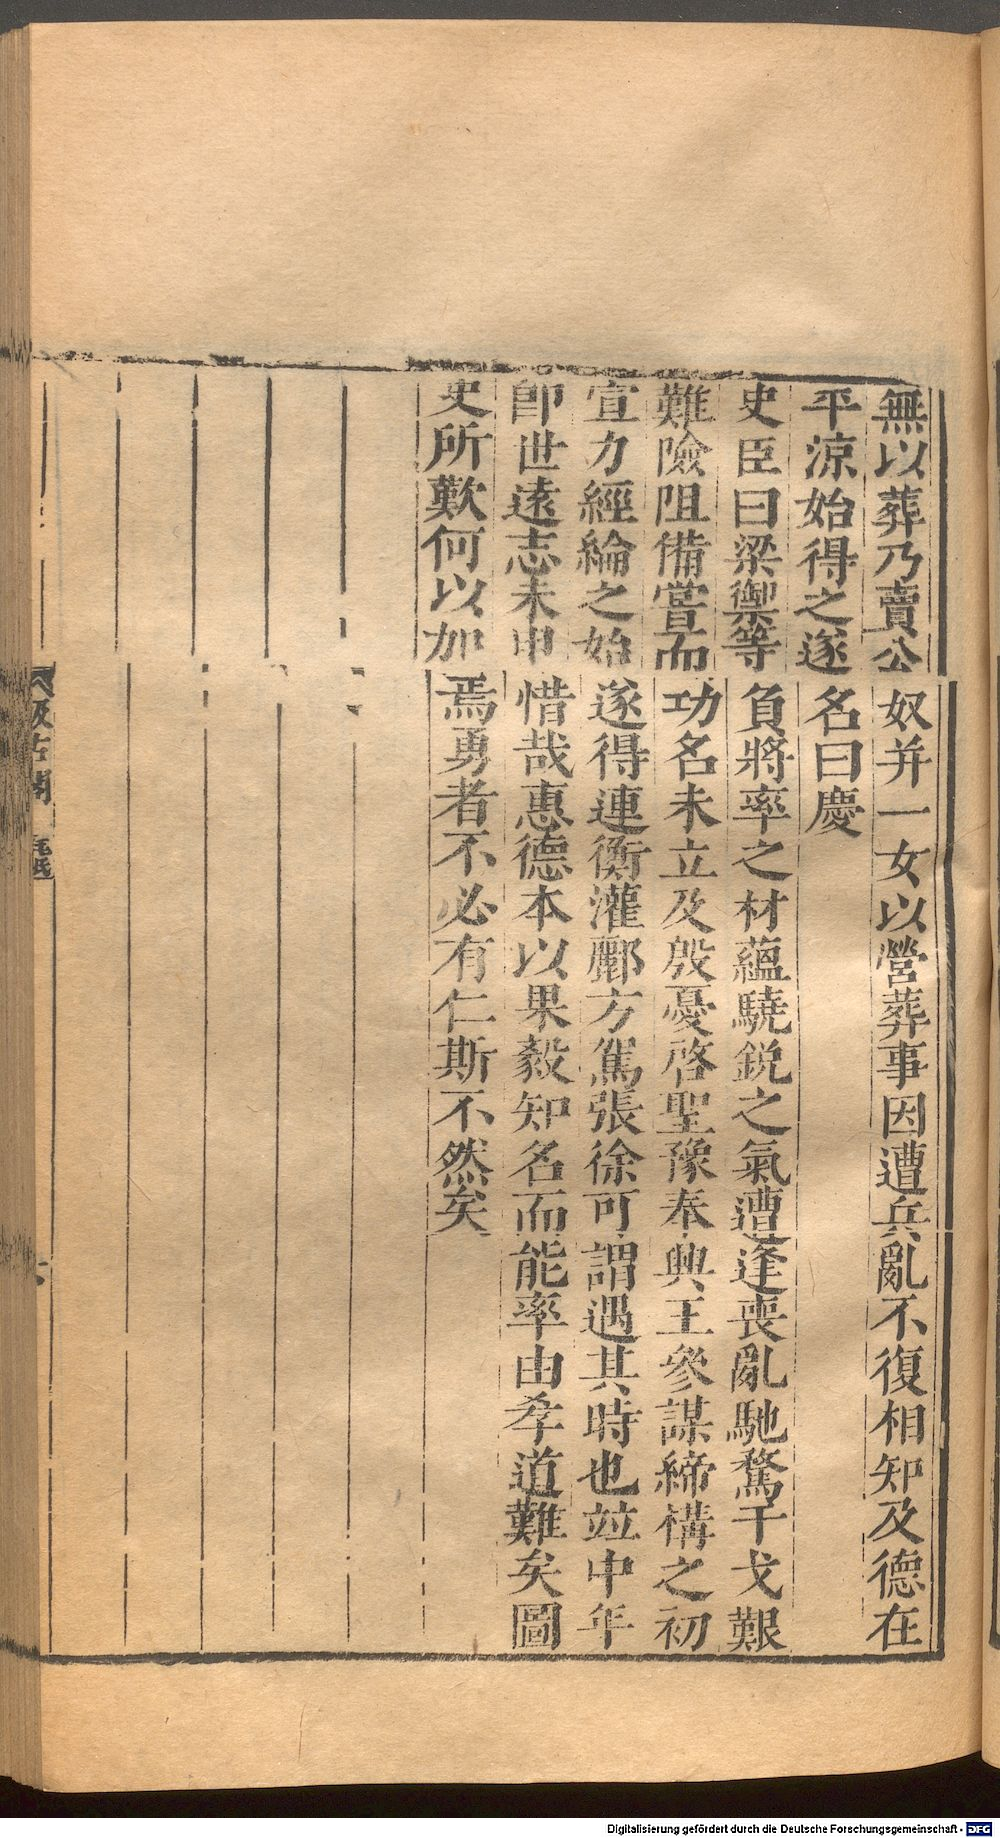 無以葬乃賣公奴并一女以營葬事因遭兵亂不復相知及德在
平涼始得之遂名曰慶
史臣曰梁禦等負將率之材蘊驍銳之氣遭逢喪亂馳騖干戈艱
難險阻備嘗而功名未立及殷憂啓聖豫奉興王參謀締構之初
宣力經綸之始遂得連衡灌酈方駕張徐可謂遇其時也竝中年
卽世遠志未申惜哉惠德本以果毅知名而能率由孝道難矣圖
史所歎何以加焉勇者不必有仁斯不然矣
汲古閣
毛氏
Digitalisierung gefördert durch die Deutsche Forschungsgemeinschaft - DFG